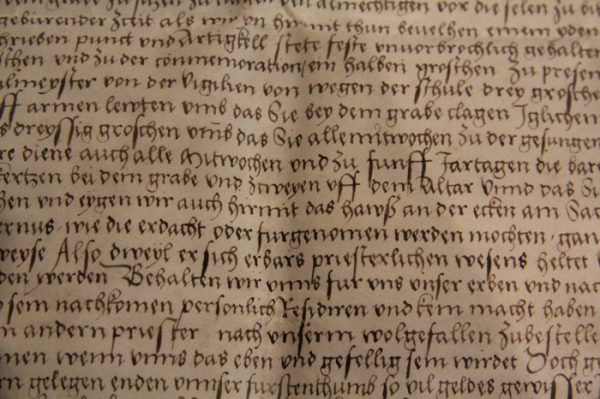 almechtigen vor die selen zu bit
geburender Zceit als wir vn hirmit thun bevelhen einem yden
schrieben punct vnd Artigkell stete feste vnvorbrochlich gehalten
schen vnd zu der commemoration ein halben groschen zu presen
almeyster von der vigilien von wegen der schule drey grosche
uff armen lewten vmb das Sie bey dem grabe clagen Iglichen
s dreyssig groschen vmb das Sie alle mitwochen zu der gesungen
re diene auch alle Mitwochen vnd zu funff Jartagen die bare
kertzen bei dem grabe vnd zcweyen vff dem Altar vnnd das Si
hen vnd eygen wir auch hirmit das hawß an der ecken am Sac
ernus wie die erdacht oder furgenomen werden mochten gan
weyse Also dweyl er sich erbars priesterlichen wesens heltet
den werden Behalten wir vnns fur vns vnser erben vnd nach
o sein nachkomen personlich Residiren vnd kein macht haben
n andern priester nach vnserm wolgefallen zubestelle
men wenn vnns das eben vnd gefellig sein wirdet Doch ge
rn gelegen enden vnnser furstenthumb so vil geldes gewisser